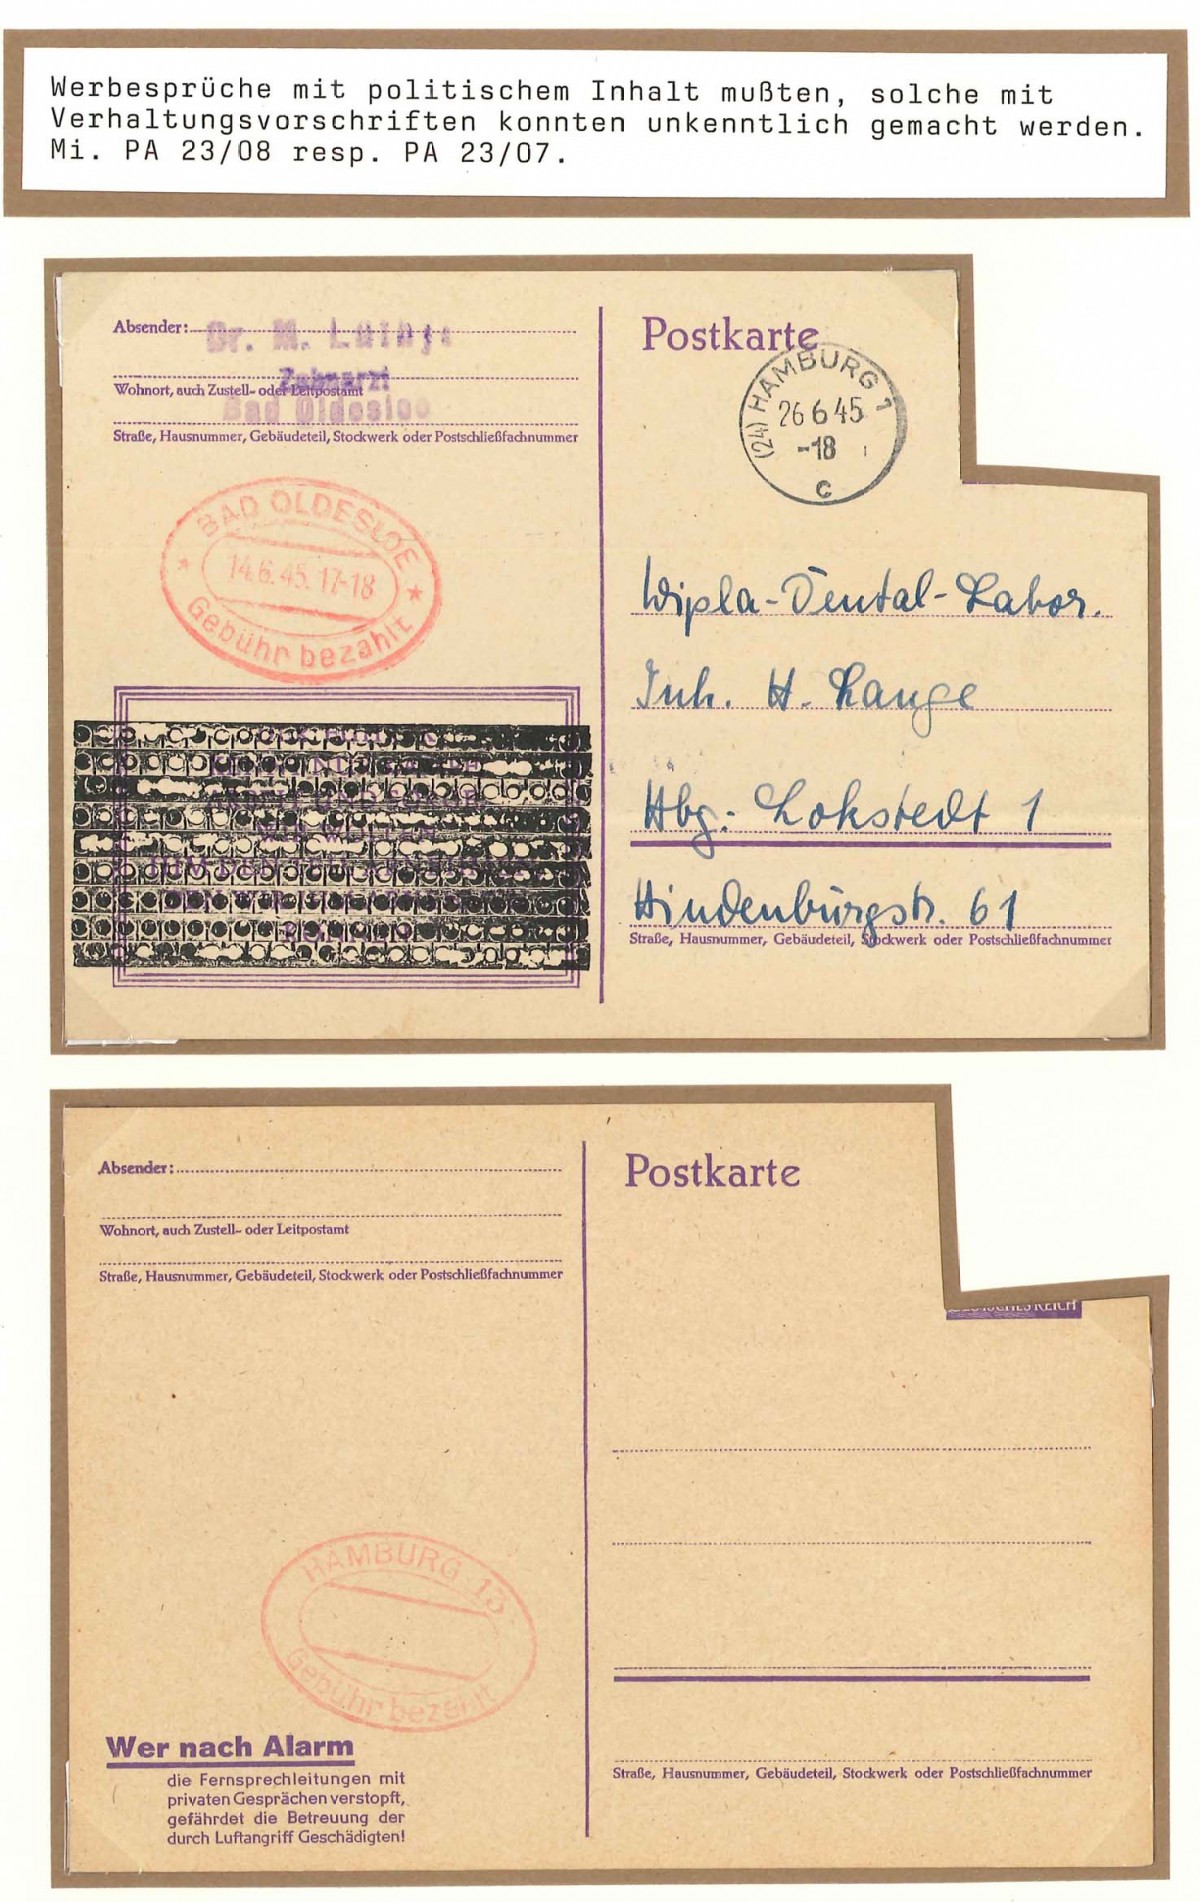 Werbesprüche mit politischem Inhalt mußten, solche mit
Verhaltungsvorschriften konnten unkenntlich gemacht werden.
Mi. PA 23/08 resp. PA 23/07.
Absender:
Dr. M.
Zahnarzt
Wohnort, auch Zustell- oder Leitpostamt
Bad Oldesloe
Straße, Hausnummer, Gebäudeteil, Stockwerk oder Postschließfachnummer
BAD OLDESLOE
14.6.45.17-18
Gebühr bezahlt
WIR WOLLEN
Postkarte
(24) HAMBURG 1
26 6 45
-18
c
Wipla-Dental-Labor.
Inh. H. Lange
Hbg.-Lokstedt 1
Hindenburgstr. 61
Straße, Hausnummer, Gebäudeteil, Stockwerk oder Postschließfachnummer
Absender:
Wohnort, auch Zustell- oder Leitpostamt
Straße, Hausnummer, Gebäudeteil, Stockwerk oder Postschließfachnummer
HAMBURG 13
Gebühr bezahlt
Wer nach Alarm
die Fernsprechleitungen mit
privaten Gesprächen verstopft,
gefährdet die Betreuung der
durch Luftangriff Geschädigten!
Postkarte
REICH
Straße, Hausnummer, Gebäudeteil, Stockwerk oder Postschließfachnummer